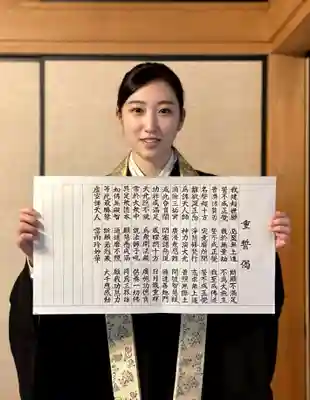 重誓偈
我建超世願 必至無上道 斯願不滿足
誓不成正覺 我於無量劫 不爲大施主
普濟諸貧苦 誓不成正覺 我至成佛道
名聲超十方 究竟靡所聞 誓不成正覺
離欲深正念 淨慧修梵行 志求無上道
爲諸天人師 神力演大光 普照無際土
消除三垢冥 廣濟衆厄難 開彼智慧眼
滅此昏盲闇 閉塞諸惡道 通達善趣門
功祚成滿足 威曜朗十方 日月戢重暉
天光隱不現 爲衆開法藏 廣施功德寶
常於大衆中 說法師子吼 供養一切佛
具足衆德本 願慧悉成滿 得爲三界雄
如佛無礙智 通達靡不照 願我功慧力
等此最勝尊 斯願若剋果 大千應感動
虛空諸天人 當雨珍妙華